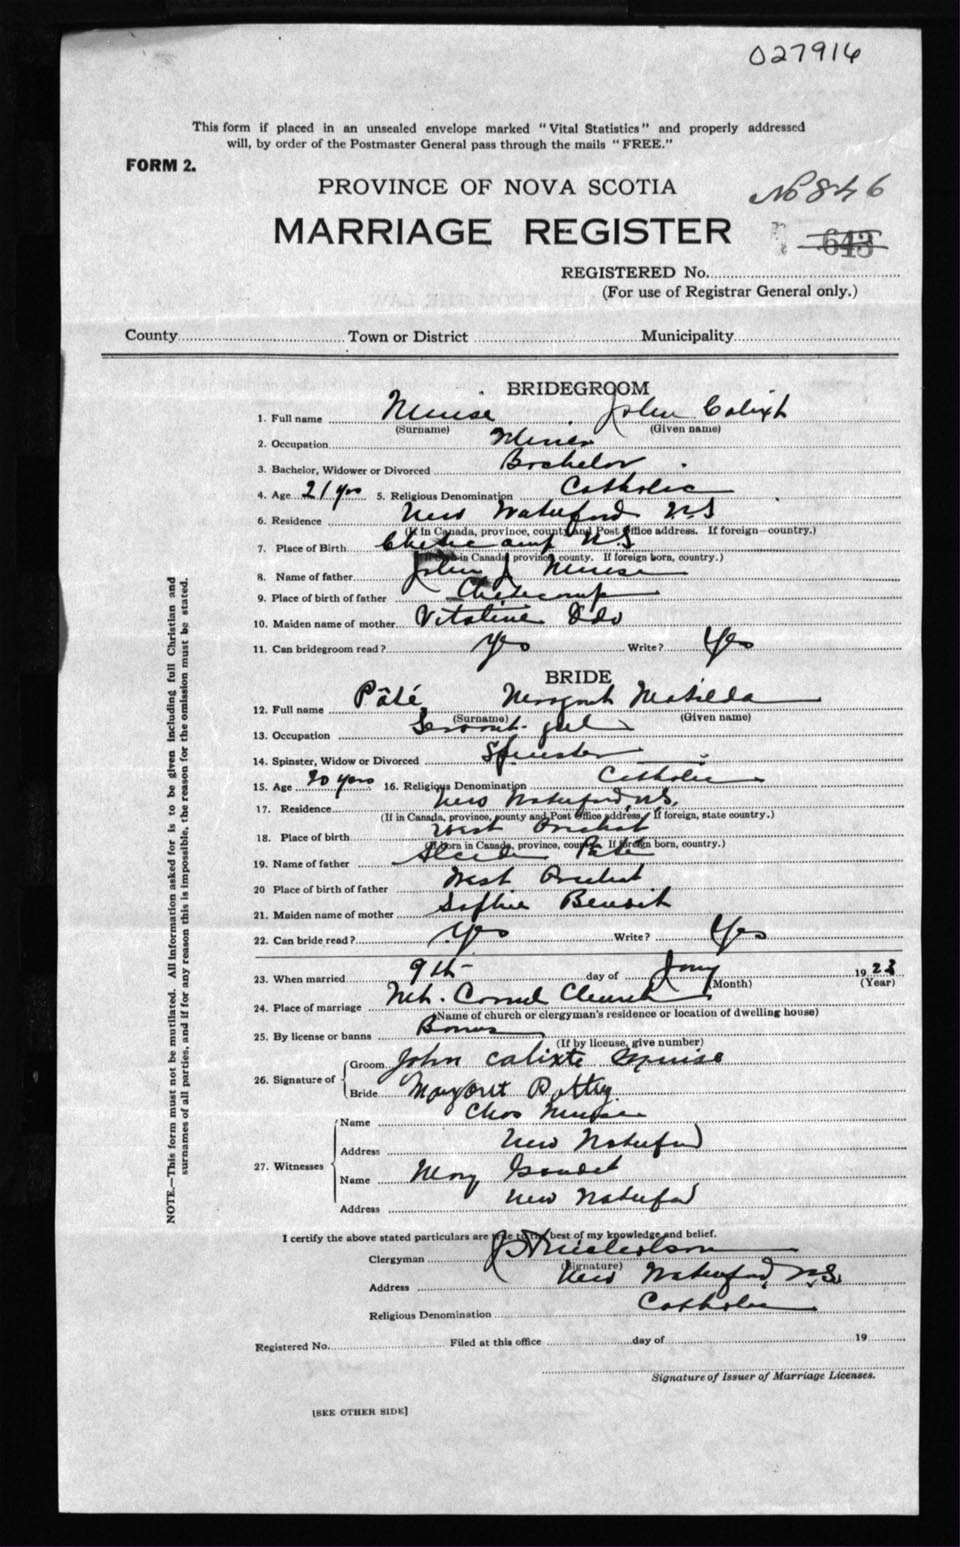 027916
This form if placed in an unsealed envelope marked "Vital Statistics" and properly addressed
will, by order of the Postmaster General pass through the mails "FREE."
FORM 2.
PROVINCE OF NOVA SCOTIA
No 846
MARRIAGE REGISTER
643
REGISTERED No.
(For use of Registrar General only.)
County Town or District Municipality
BRIDEGROOM
1. Full name Muise John Calixt
(Surname) (Given name)
2. Occupation Miner
3. Bachelor, Widower or Divorced Bachelor
4. Age 21 yrs 5. Religious Denomination Catholic
6. Residence New Waterford N.S
(If in Canada, province, county and Post Office address. If foreign country.)
7. Place of Birth Cheticamp N.S
(If born in Canada province county. If foreign born, country.)
8. Name of father John J Muise
9. Place of birth of father Cheticamp
10. Maiden name of mother Vitaline
11. Can bridegroom read? Yes Write? Yes
BRIDE
12. Full name Pâté Margaret Matilda
(Surname) (Given name)
13. Occupation Servant girl
14. Spinster, Widow or Divorced Spinster
15. Age 20 yrs 16. Religious Denomination Catholic
17. Residence New Waterford, N.S,
(If in Canada, province, county and Post Office address. If foreign, state country.)
18. Place of birth West Arichat
(If born in Canada, province, county. If foreign born, country.)
19. Name of father Pâté
20 Place of birth of father West Arichat
21. Maiden name of mother Sophie Benoit
22. Can bride read? Yes Write? Yes
23. When married 9th day of Jany 1923
(Month) (Year)
24. Place of marriage Mt. Carmel Church
(Name of church or clergyman's residence or location of dwelling house)
25. By license or banns Banns
(If by license, give number)
26. Signature of Groom John Calixte Muise
Bride Margaret Pottey
27. Witnesses Name Chas Muise
Address New Waterford
Name Mary Gaudet
Address New Waterford
I certify the above stated particulars are true to the best of my knowledge and belief.
Clergyman J H Nicholson
(Signature)
Address New Waterford, N.S.
Religious Denomination Catholic
Registered No. Filed at this office day of 19
Signature of Issuer of Marriage Licenses.
[SEE OTHER SIDE]
NOTE.—This form must not be mutilated. All information asked for is to be given including full Christian and
surnames of all parties, and if for any reason this is impossible, the reason for the omission must be stated.